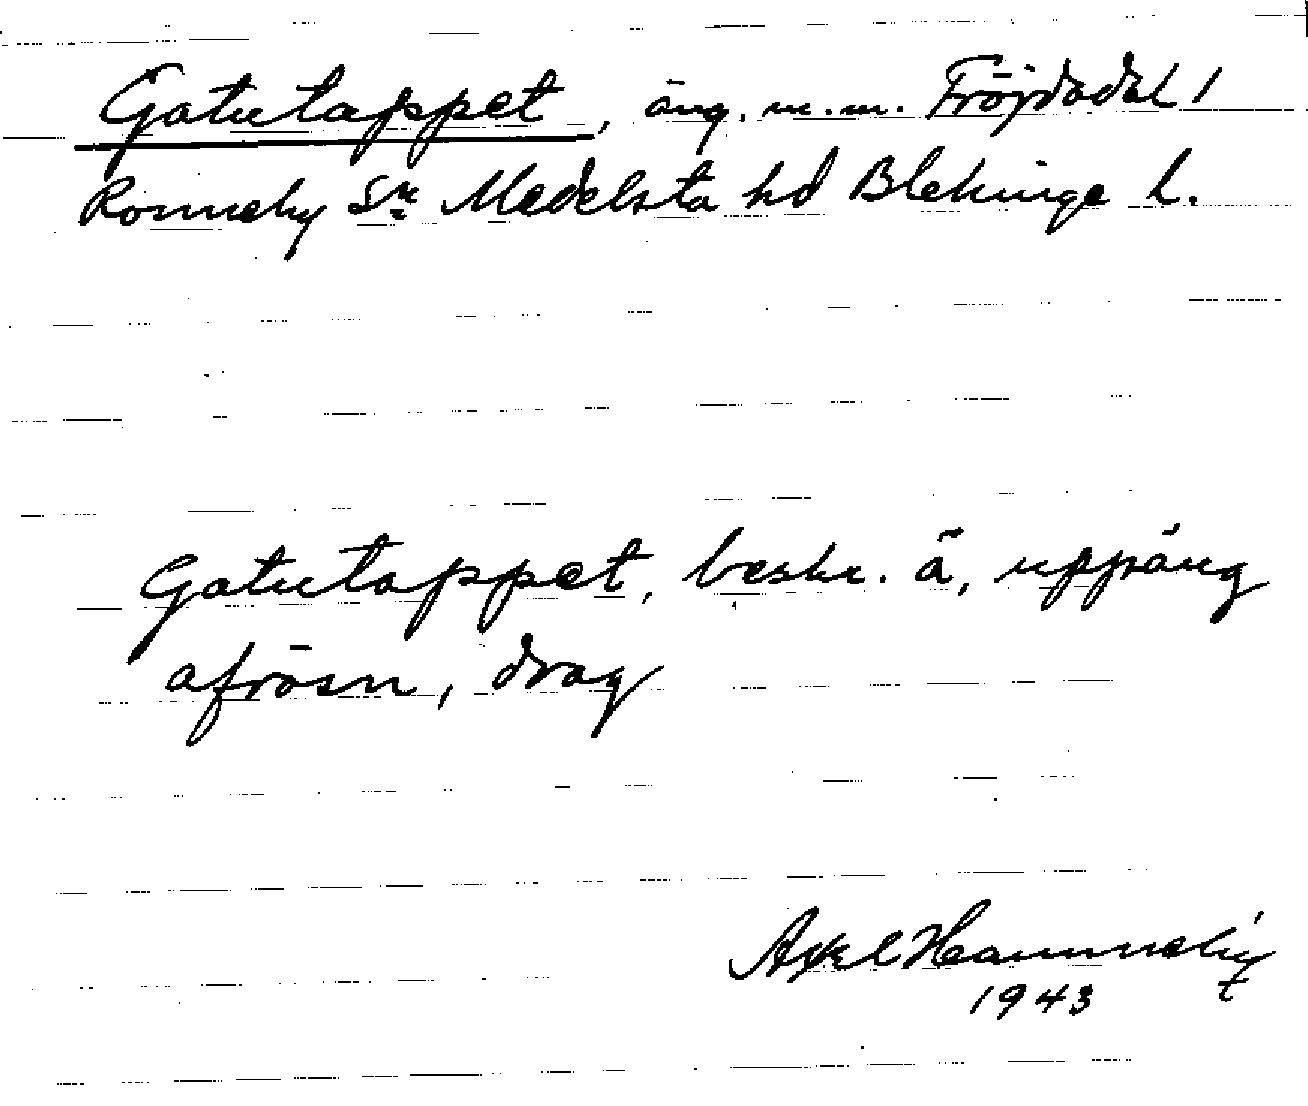 Gatutappet, äng. m.m. Fröjdadal 1
Ronneby Sn Medelsta hd Blekinge L.
Gatutappet, beskr. å, uppäng
afrösn, drag
Axel Hammeby
1943